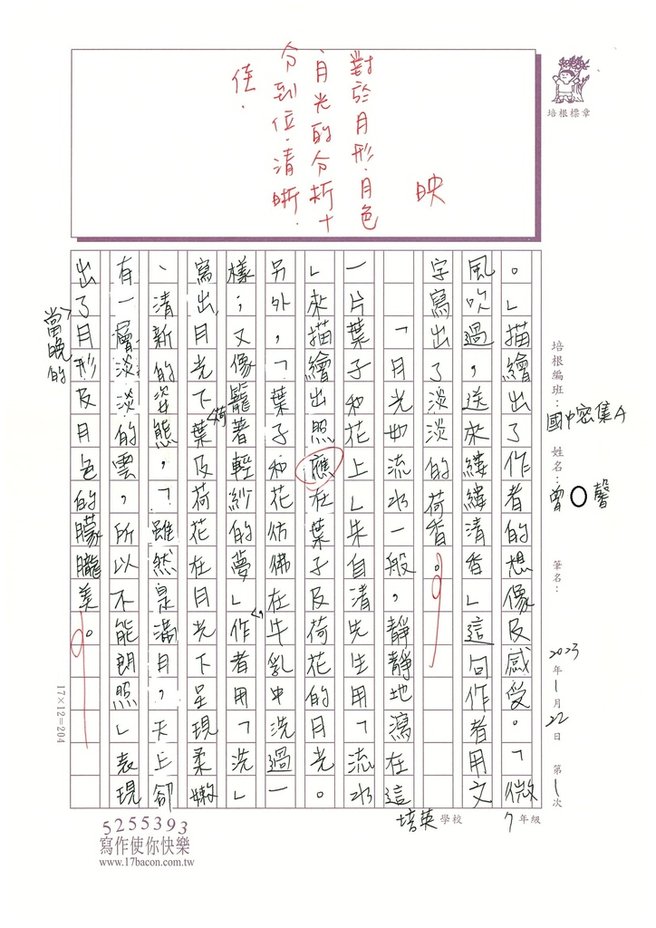 映
對於月形.月色
.月光的分析十
分到位.清晰.
佳.
培根標章
培根編班:國中密集A
姓名:曾〇馨
筆名:
2023年1月22日 第1次
培英學校 7年級
。」描繪出了作者的想像及感受。「微
風吹過,送來縷縷清香」這句作者用文
字寫出了淡淡的荷香。
「月光如流水一般,靜靜地瀉在這
一片葉子和花上」朱自清先生用「流水
」來描繪出照應在葉子及荷花的月光。
另外,「葉子和花彷彿在牛乳中洗過一
樣;又像籠著輕紗的夢」,作者用「洗」
寫出月光下荷葉及荷花在月光下呈現柔嫩
、清新的姿態,「雖然是滿月,天上卻
有一層淡淡的雲,所以不能朗照」表現
出了當晚的月形及月色的朦朧美。
17×12=204
5255393
寫作使你快樂
www.17bacon.com.tw